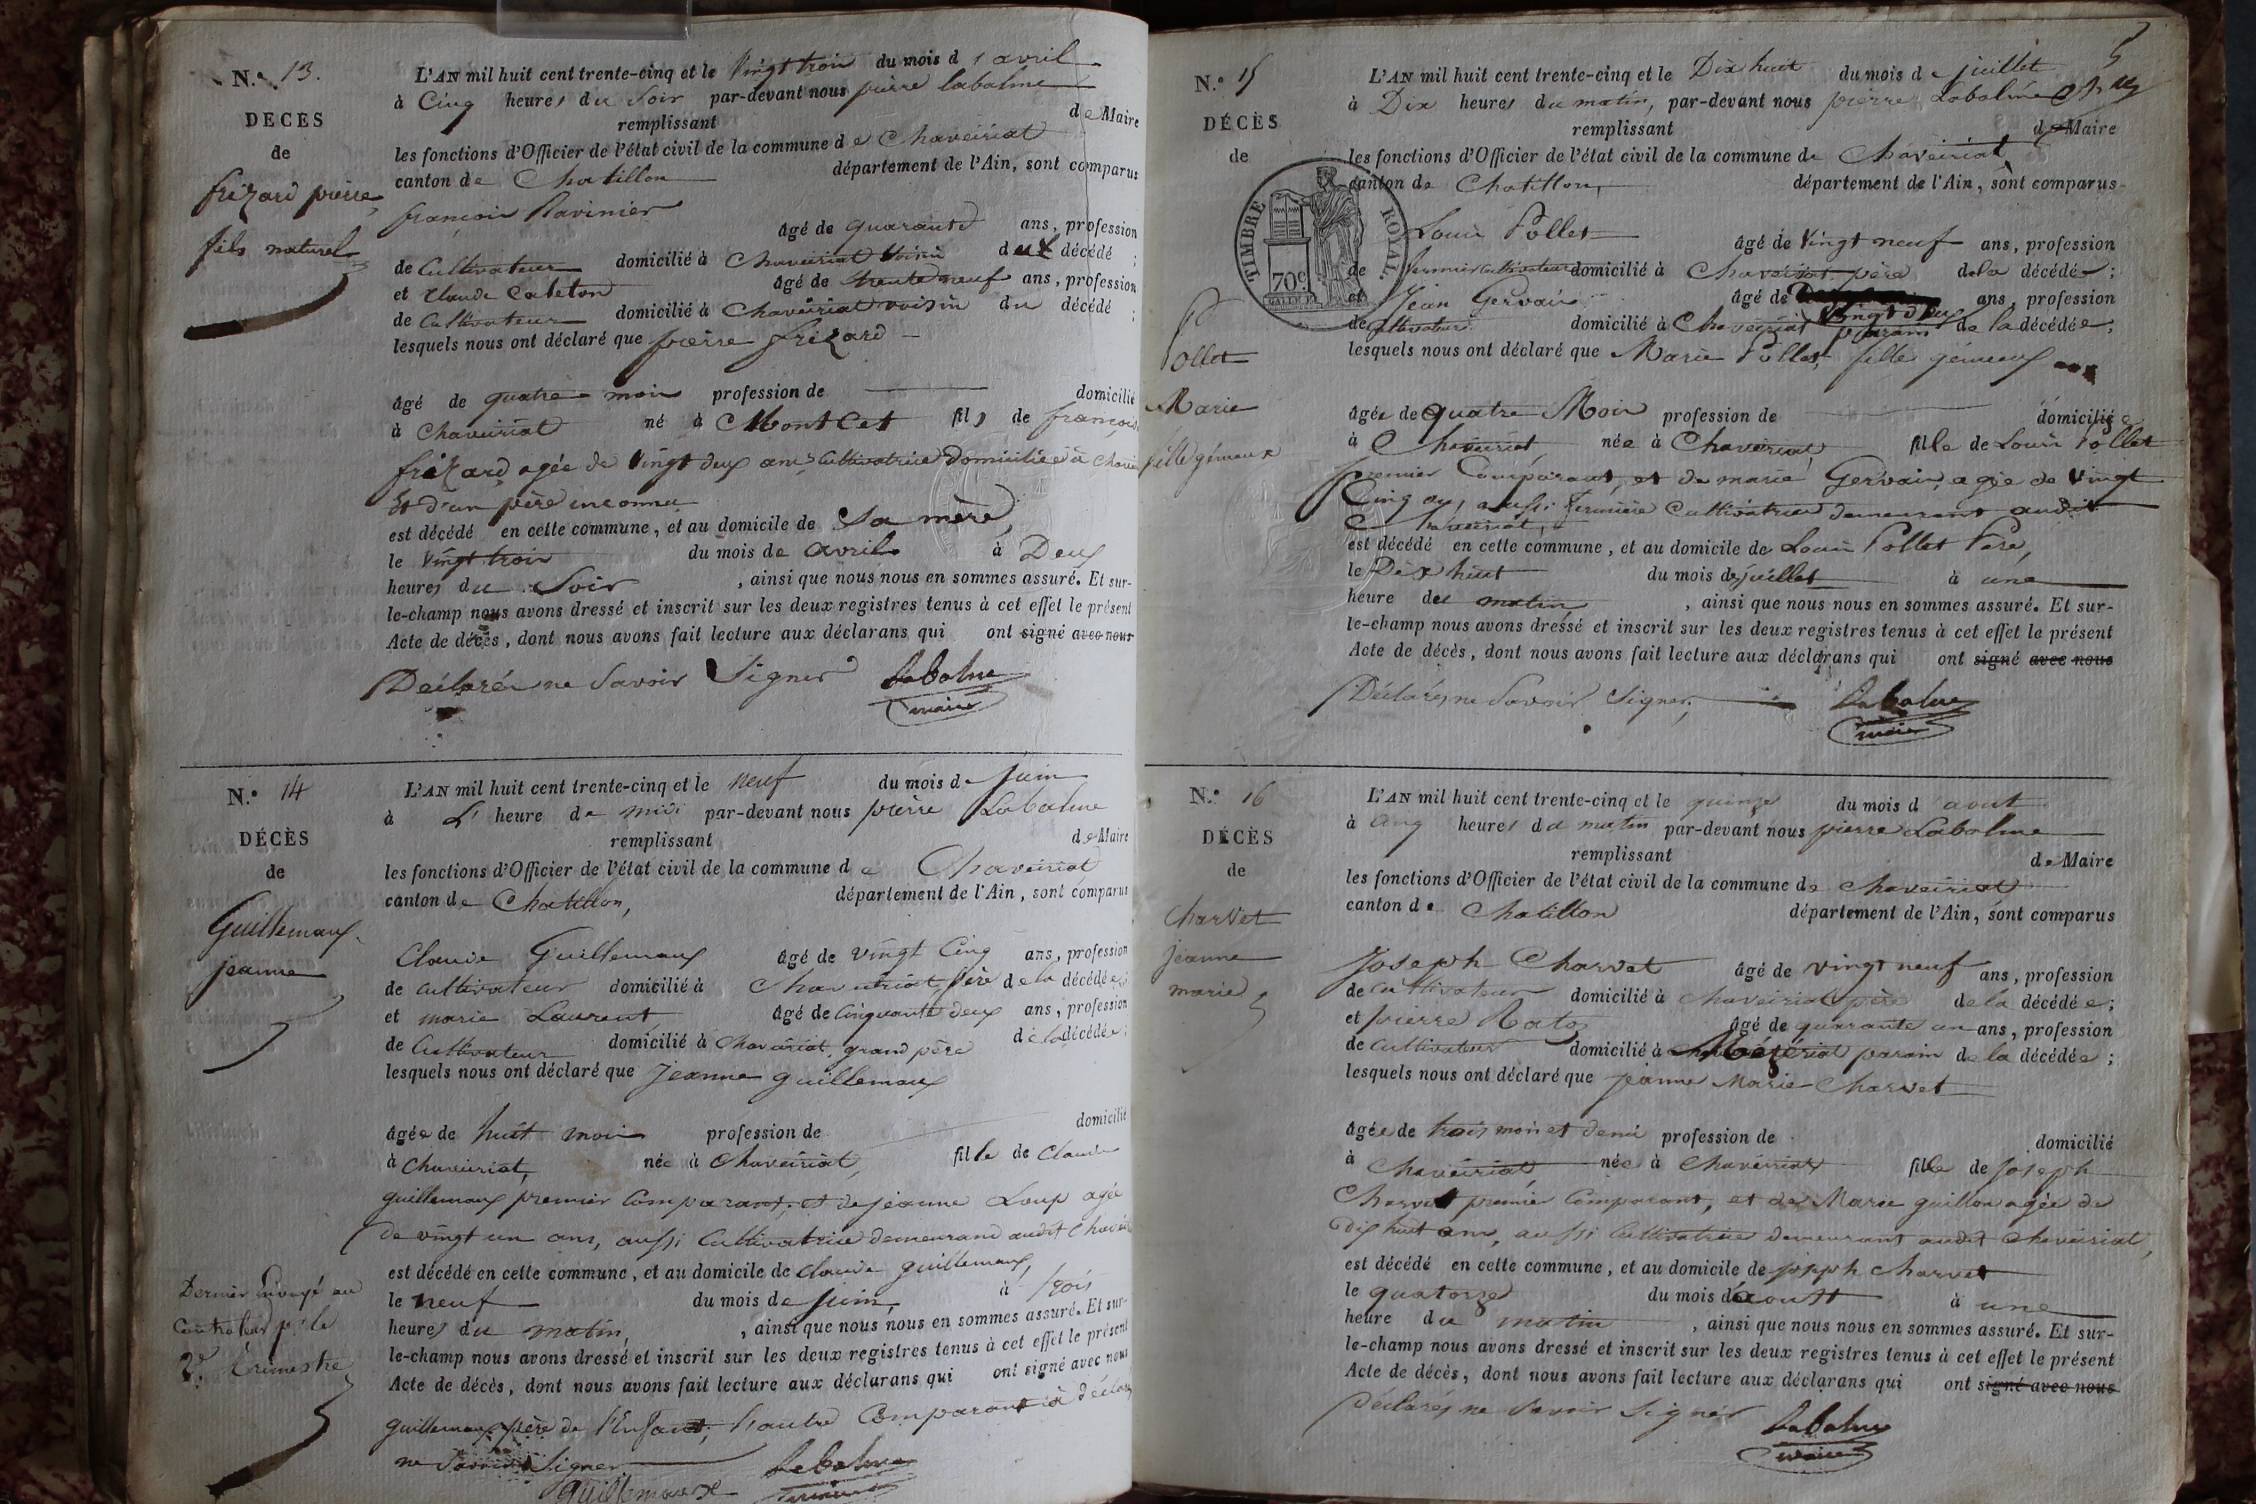 N.° 13.
DECES
de
frizard pierre,
fils naturel
L'AN mil huit cent trente-cinq et le Vingt trois du mois d'avril
à Cinq heures du Soir par-devant nous pierre Labalme
remplissant de Maire
les fonctions d'Officier de l'état civil de la commune de Chaveiriat
canton de Chatillon département de l'Ain, sont comparus
françois Ravinier
âgé de quarante ans, profession
de Cultivateur domicilié à Chaveiriat Voisin du décédé ;
et Claude Cateton âgé de trente neuf ans, profession
de Cultivateur domicilié à Chaveiriat voisin du décédé ;
lesquels nous ont déclaré que pierre frizard
âgé de quatre mois profession de domicilié
à Chaveiriat né à MontCet fils de françoise
frizard agée de Vingt deux ans Cultivatrice Domiciliée à Chavei
Et d'un père inconnu
est décédé en cette commune, et au domicile de Sa mère,
le Vingt trois du mois de avril à Deux
heures du Soir, ainsi que nous nous en sommes assuré. Et sur-
le-champ nous avons dressé et inscrit sur les deux registres tenus à cet effet le présent
Acte de décès, dont nous avons fait lecture aux déclarans qui ont signé avec nous
Déclarés ne Savoir Signer Labalme
maire
N.° 14
DÉCÈS
de
Guillemaux
jeanne
Dernier Envoyé au
Controleur pr le
2e Trimestre
L'AN mil huit cent trente-cinq et le neuf du mois de juin
à L' heure de midi par-devant nous pierre Labalme
remplissant de Maire
les fonctions d'Officier de l'état civil de la commune de Chaveiriat
canton de Chatillon, département de l'Ain, sont comparus
Claude Guillemaux âgé de vingt Cinq ans, profession
de cultivateur domicilié à Chaveiriat, père de la décédée ;
et marie Laurent âgé de Cinquante deux ans, profession
de Cultivateur domicilié à Chaveiriat, grand père de la décédée ;
lesquels nous ont déclaré que Jeanne guillemaux
âgée de huit mois profession de domicilié
à Chaveiriat, née à Chaveiriat, fille de Claude
guillemaux premier Comparant, et de jeanne Loup agée
de vingt un ans, aussi Cultivatrice demeurand audit Chavei
est décédé en cette commune, et au domicile de Claude guillemaux,
le neuf du mois de juin, à trois
heures du matin, ainsi que nous nous en sommes assuré. Et sur-
le-champ nous avons dressé et inscrit sur les deux registres tenus à cet effet le présent
Acte de décès, dont nous avons fait lecture aux déclarans qui ont signé avec nous
guillemaux père de l'Enfant, l'autre Comparant à déclaré
ne Savoir Signer Labalme
Guillemaux maire
N.° 15
DÉCÈS
de
Pollet
Marie
fille gémeaux
TIMBRE ROYAL.
70c
L'AN mil huit cent trente-cinq et le Dix huit du mois de juillet
à Dix heures du matin, par-devant nous pierre Labalme
remplissant de Maire
les fonctions d'Officier de l'état civil de la commune de Chaveiriat
canton de Chatillon, département de l'Ain, sont comparus
Louis Pollet âgé de Vingt neuf ans, profession
de fermier cultivateur domicilié à Chaveiriat père de la décédée ;
et Jean Gervais âgé de Vingt deux ans, profession
de cultivateur domicilié à Chaveiriat parain de la décédée ;
lesquels nous ont déclaré que Marie Pollet, fille gémeaux
âgée de quatre Mois profession de domicilié
à Chaveiriat, née à Chaveiriat, fille de Louis Pollet
premier Comparant, et de marie Gervais, agée de vingt
Cinq ans, aussi Fermière Cultivatrice demeurant audit
Chaveiriat,
est décédé en cette commune, et au domicile de Louis Pollet Père,
le Dix huit du mois de juillet à une
heure du matin, ainsi que nous nous en sommes assuré. Et sur-
le-champ nous avons dressé et inscrit sur les deux registres tenus à cet effet le présent
Acte de décès, dont nous avons fait lecture aux déclarans qui ont signé avec nous
Déclarés ne Savoir Signer, Labalme
maire
N.° 16
DÉCÈS
de
Charvet
jeanne
marie
L'AN mil huit cent trente-cinq et le quinze du mois d'aout
à Cinq heures du matin par-devant nous pierre Labalme
remplissant de Maire
les fonctions d'Officier de l'état civil de la commune de Chaveiriat
canton de Chatillon département de l'Ain, sont comparus
Joseph Charvet âgé de vingt neuf ans, profession
de Cultivateur domicilié à Chaveiriat père de la décédée ;
et pierre Ratoz âgé de quarante un ans, profession
de Cultivateur domicilié à Mézériat parain de la décédée ;
lesquels nous ont déclaré que jeanne Marie Charvet
âgée de trois mois et demi profession de domicilié
à Chaveiriat, née à Chaveiriat fille de Joseph
Charvet premier Comparant, et de Marie guillon agée de
dix huit ans, aussi Cultivatrice demeurant audit Chaveiriat,
est décédé en cette commune, et au domicile de joseph Charvet
le quatorze du mois d'aoust à une
heure du matin, ainsi que nous nous en sommes assuré. Et sur-
le-champ nous avons dressé et inscrit sur les deux registres tenus à cet effet le présent
Acte de décès, dont nous avons fait lecture aux déclarans qui ont signé avec nous
Déclarés ne Savoir Signer Labalme
maire